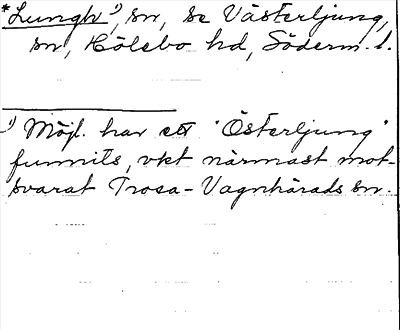 *Lungh¹), sn, se Västerljung,
sn, Hölebo hd, Söderm. l.
¹) Möjl. har ett "Österljung"
funnits, vkt närmast mot-
svarat Trosa-Vagnhärads sn.